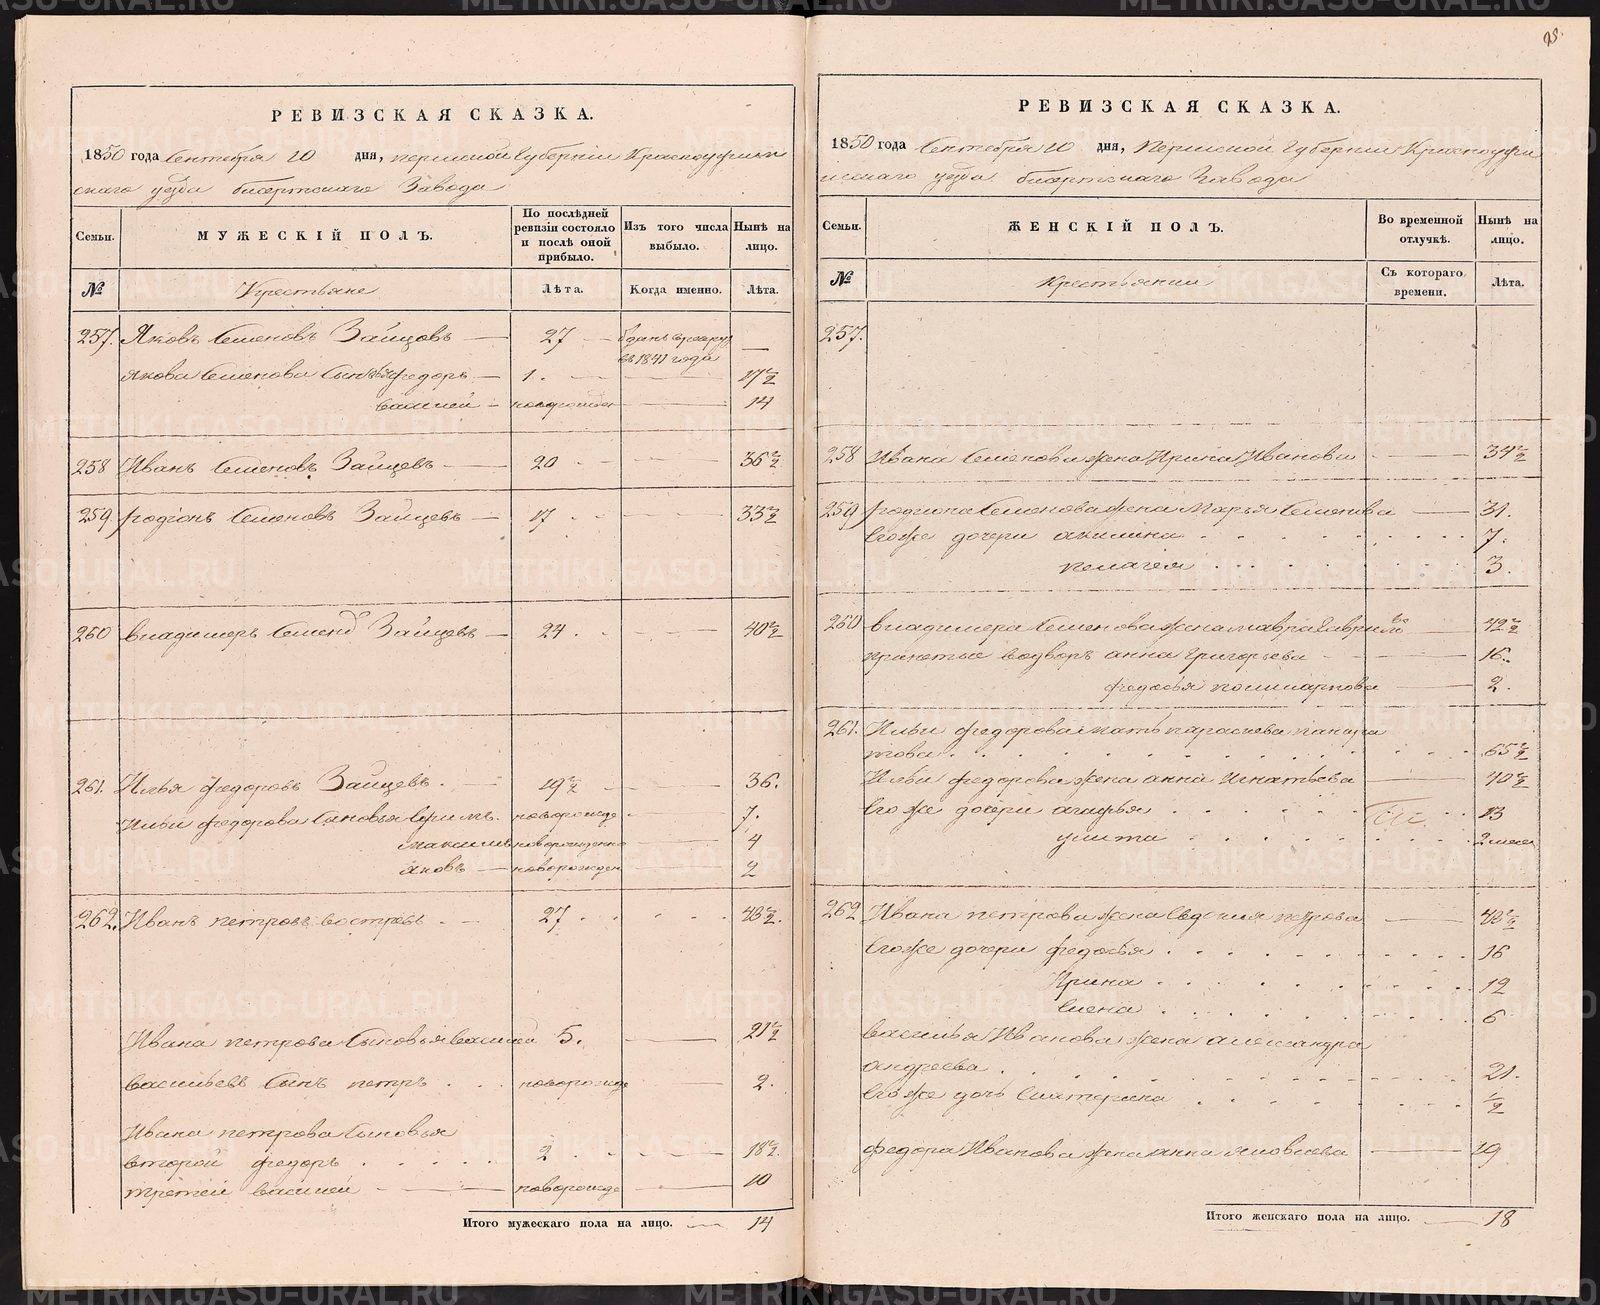 РЕВИЗСКАЯ СКАЗКА.
1850 года Сентября 10 дня, пермской Губернии Красноуфим
скаго уезда бисертскаго Завода
Семьи. МУЖЕСКІЙ ПОЛЪ. По послѣдней ревизіи состояло и послѣ оной прибыло. Изъ того числа выбыло. Нынѣ на лицо.
№ Крестьяне Лѣта. Когда именно. Лѣта.
257. Яковъ Семеновъ Зайцовъ 27 въ 1841 года
Якова Семенова Сынъ Федоръ 1. 17½
василей новорожден 14
258 Иванъ Семеновъ Зайцевъ 20 36½
259. родіонъ Семеновъ Зайцевъ 17 33½
260 владимеръ Семенов Зайцевъ 24 40½
261. Илья федоровъ Зайцевъ 19½ 36.
Ильи федорова Сыновья новорожде 7.
максимъ новорожденно 4
яковъ новорожден 2
262. Иванъ петровъ востревъ 27 43½
Ивана петрова Сыновья василей 5. 21½
васильевъ Сынъ петръ новорожде 2.
Ивана петрова Сыновья
второй федоръ 2 18½
третей василей новорожде 10
Итого мужескаго пола на лицо. 14
РЕВИЗСКАЯ СКАЗКА.
1850 года Сентября 10 дня, Пермской Губерніи Красноуфи
мскаго уезда бисертскаго Завода
Семьи. ЖЕНСКІЙ ПОЛЪ. Во временной отлучкѣ. Нынѣ на лицо.
№ Крестьянки Съ котораго времени. Лѣта.
257.
258 Ивана Семенова жена Ирина Иванова 34½
259 родиона Семенова жена Марья Семенова 31.
Егоже дочери акилина 7.
пелагея 3.
260 владимера Семенова жена мавра Гаврило 42½
принетые водворъ анна Григорьева 16.
федосья 2.
261. Ильи федорова мать парасковья
това 65½
Ильи федорова жена анна Игнатьева 40½
Егоже дочери агафья 13
улита
262 Ивана петрова жена Евдокия петрова 43½
Егоже дочери федосья 16
Ирина 12
Елена 6
василья Иванова жена александра
андреева 21.
Егоже дочь Екатерина ½
федора Иванова жена анна яковлева 19
Итого женскаго пола на лицо. 18
METRIKI.GASO-URAL.RU